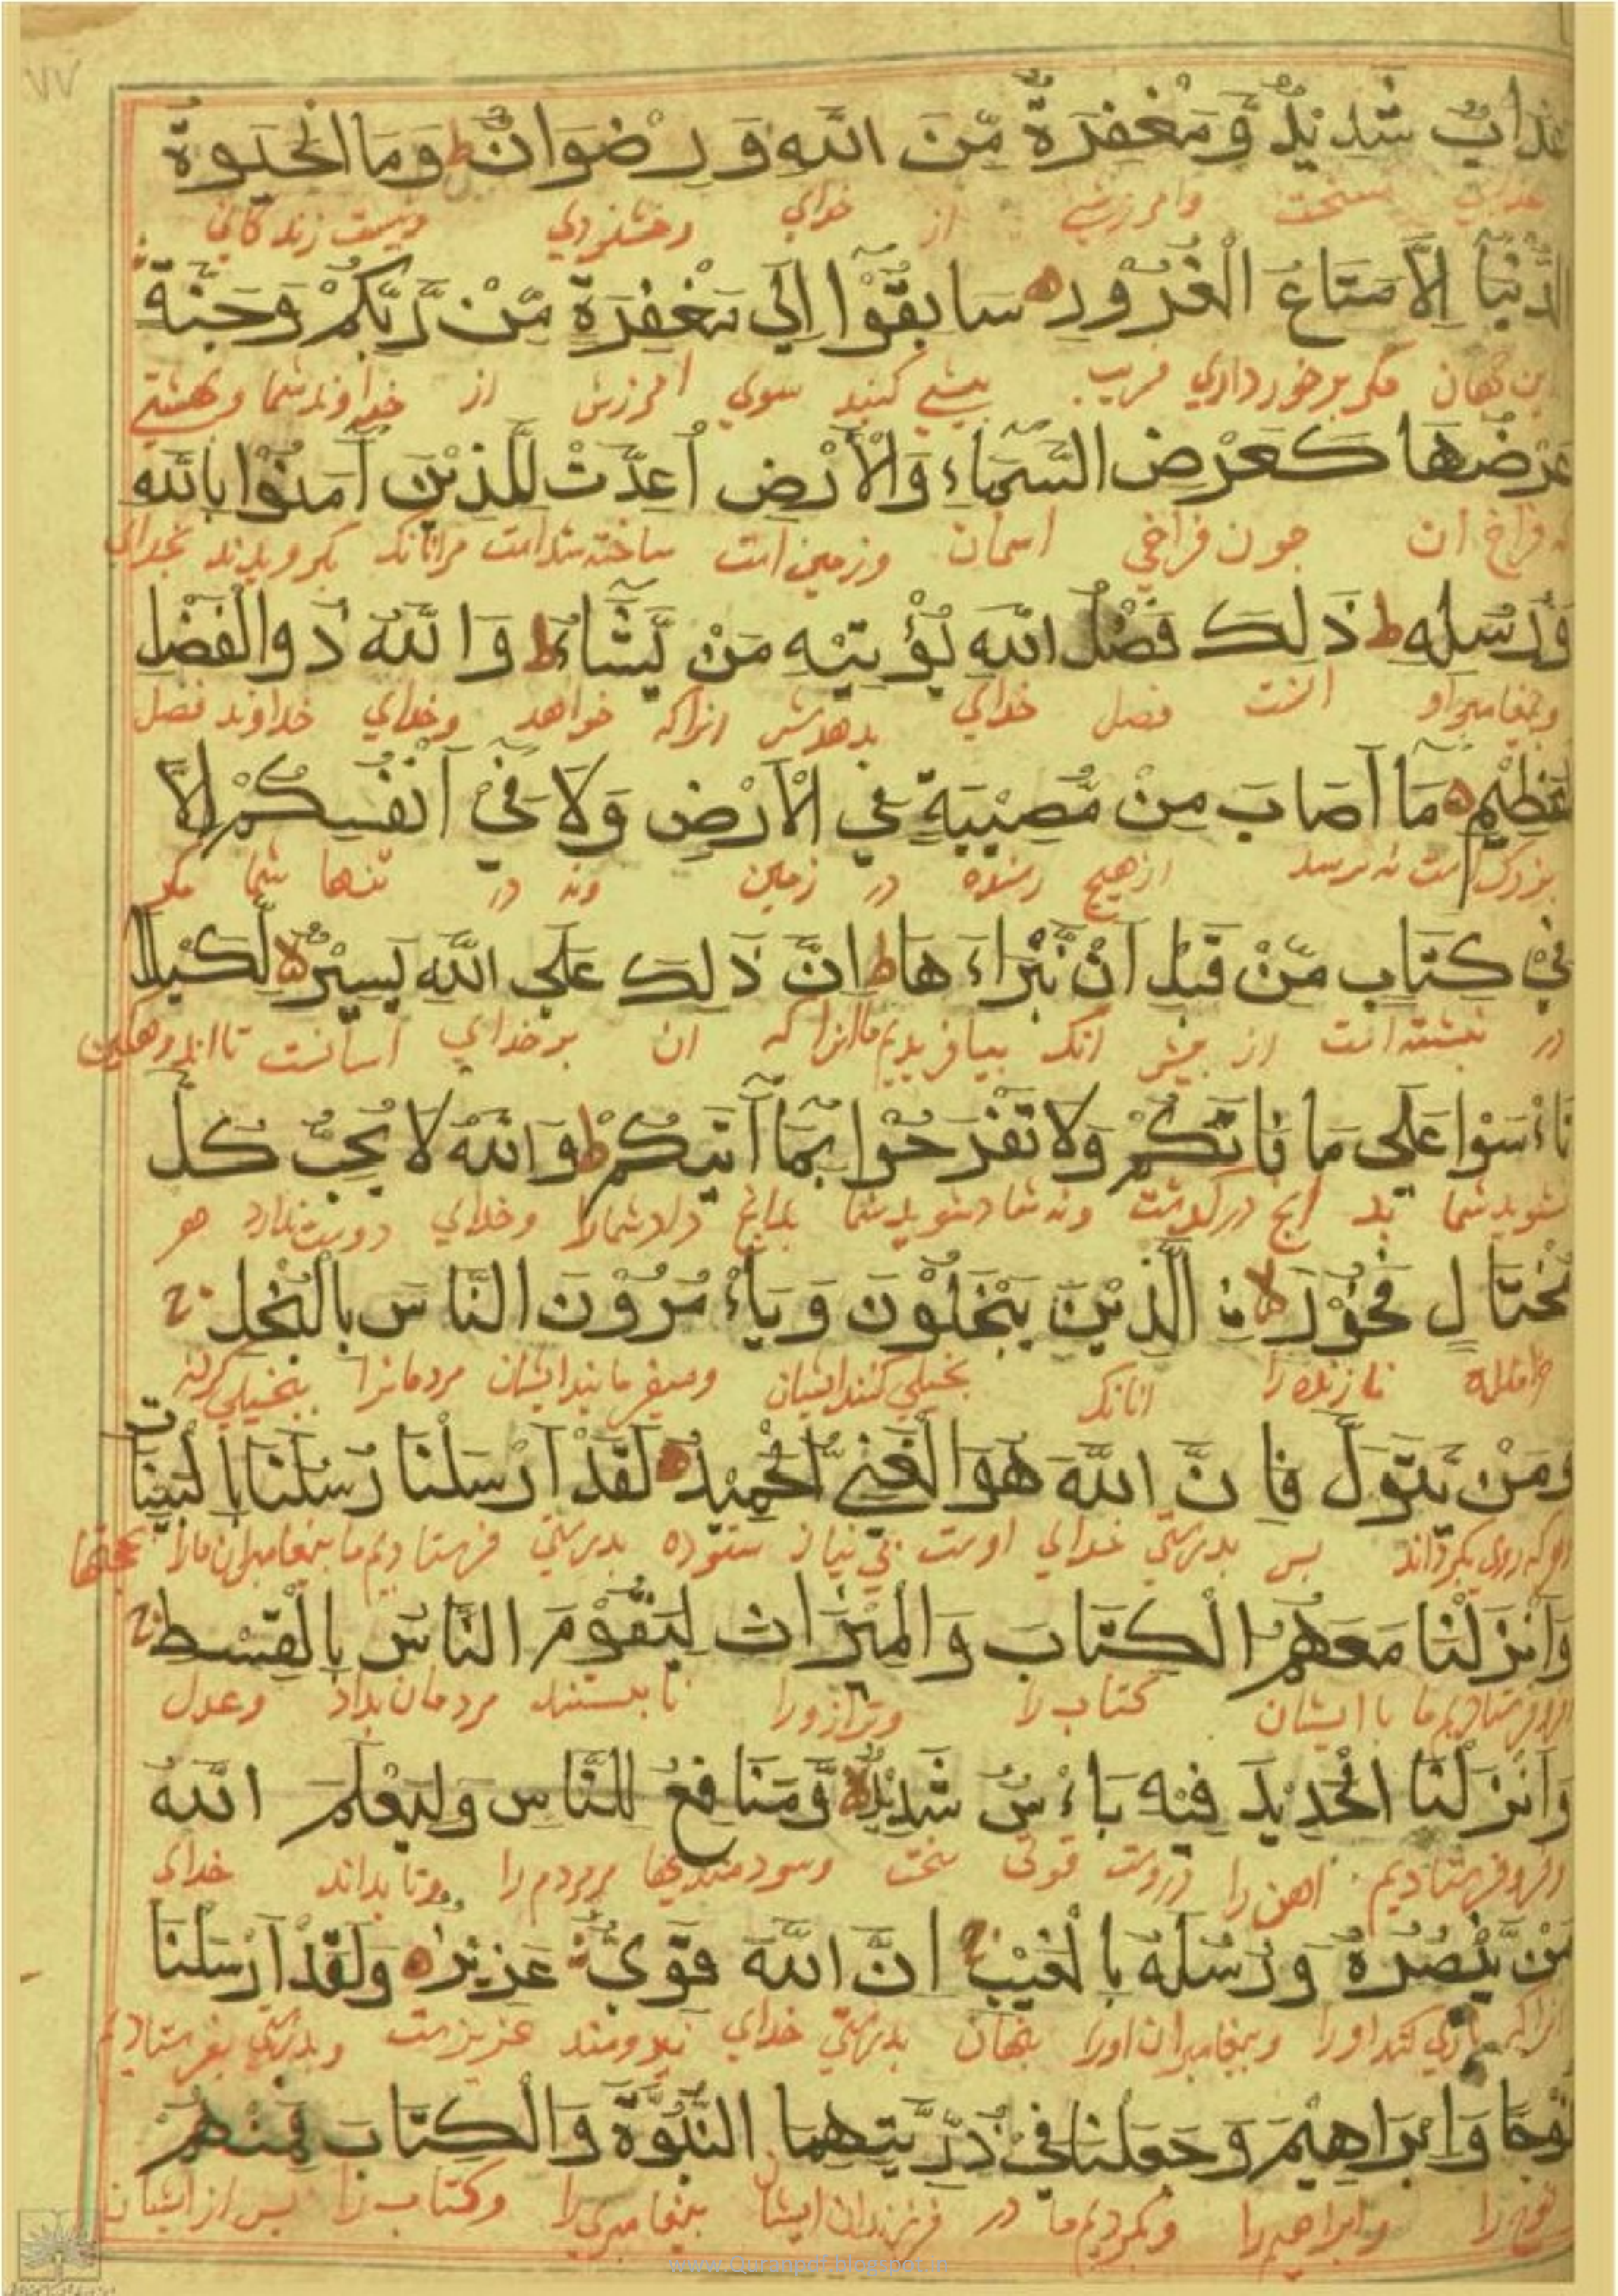 ٧٧
عَذَابٌ شَدِيْدٌ وَّمَغْفِرَةٌ مِّنَ اللّٰهِ وَرِضْوَانٌ ط وَمَا الْحَيٰوةُ
عذابي سخت وامرزشي از خداي وخشنودي ونيست زندكاني
الدُّنْيَا اِلَّا مَتَاعُ الْغُرُوْرِ ه سَابِقُوْا اِلٰي مَغْفِرَةٍ مِّنْ رَّبِّكُمْ وَجَنَّةٍ
اين جهان مكر برخورداري فريب بيشي كنيد سوي امرزش از خداوند شما وبهشتي
عَرْضُهَا كَعَرْضِ السَّمَاءِ وَالْاَرْضِ اُعِدَّتْ لِلَّذِيْنَ اٰمَنُوْا بِاللّٰهِ
كه فراخ ان جون فراخي اسمان وزمين است ساخته شداست مرانانكه بكرويدند بخداي
وَرُسُلِهٖ ط ذٰلِكَ فَضْلُ اللّٰهِ يُؤْتِيْهِ مَنْ يَّشَاءُ ط وَاللّٰهُ ذُوالْفَضْلِ
وبيغامبر او انست فضل خداي بدهدش انراكه خواهد وخداي خداوند فضل
الْعَظِيْمِ ه مَا اَصَابَ مِنْ مُّصِيْبَةٍ فِي الْاَرْضِ وَلَا فِيْ اَنْفُسِكُمْ اِلَّا
بزرك است نه برسد ازهيج رسنده در زمين ونه در تنها شما مكر
فِيْ كِتَابٍ مِّنْ قَبْلِ اَنْ نَّبْرَاَهَا ط اِنَّ ذٰلِكَ عَلَي اللّٰهِ يَسِيْرٌ لا لِّكَيْلَا
در نبشته است از بيش انك بيافريديم ما انراكه ان برخداي اسانست تا اندوهكين
تَاْسَوْا عَلٰي مَا فَاتَكُمْ وَلَا تَفْرَحُوْا بِمَا اٰتٰيكُمْ ط وَاللّٰهُ لَا يُحِبُّ كُلَّ
نشويد شما بد انج دركذشت ونه شاد شويد شما بدانج داد شمارا وخداي دوست ندارد هر
مُخْتَالٍ فَخُوْرٍ لا نِ الَّذِيْنَ يَبْخَلُوْنَ وَيَاْمُرُوْنَ النَّاسَ بِالْبُخْلِ
خرامنده نازنده را انانك بخيلي كنند ايشان وميفرمايند ايشان مردمانرا ببخيلي كردن
وَمَنْ يَّتَوَلَّ فَاِنَّ اللّٰهَ هُوَالْغَنِيُّ الْحَمِيْدُ ه لَقَدْ اَرْسَلْنَا رُسُلَنَا بِالْبَيِّنَاتِ
وهركه روي بكرداند بس بدرستي خداي اوست بي نياز ستوده بدرستي فرستاديم ما بيغامبران مارا بحجتها
وَاَنْزَلْنَا مَعَهُمُ الْكِتَابَ وَالْمِيْزَانَ لِيَقُوْمَ النَّاسُ بِالْقِسْطِ
وفروفرستاديم ما با ايشان كتاب را وترازورا تا بيستند مردمان بداد وعدل
وَاَنْزَلْنَا الْحَدِيْدَ فِيْهِ بَاْسٌ شَدِيْدٌ وَّمَنَافِعُ لِلنَّاسِ وَلِيَعْلَمَ اللّٰهُ
وفروفرستاديم اهن را دروست قوتي سخت وسودمنديها مردم را وتا بداند خداي
مَنْ يَّنْصُرُهٗ وَرُسُلَهٗ بِالْغَيْبِ اِنَّ اللّٰهَ قَوِيٌّ عَزِيْزٌ ه وَلَقَدْ اَرْسَلْنَا
انراكه ياري كند اورا وبيغامبران اورا بنهان بدرستي خداي نيرومند عزيزست وبدرستي بفرستاديم
نُوْحًا وَاِبْرَاهِيْمَ وَجَعَلْنَا فِيْ ذُرِّيَّتِهِمَا النُّبُوَّةَ وَالْكِتَابَ فَمِنْهُمْ
نوح را وابراهيم را وبكرديم ما در فرزندان ايشان بيغامبري را وكتاب را بس از ايشان
www.Quranpdf.blogspot.in